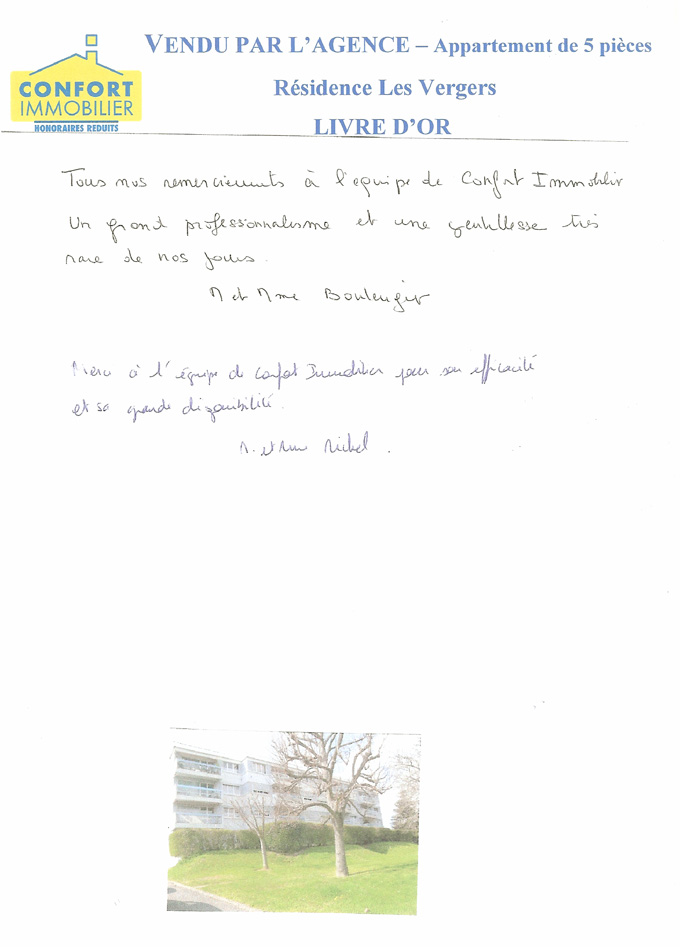 CONFORT
IMMOBILIER
HONORAIRES REDUITS
VENDU PAR L'AGENCE – Appartement de 5 pièces
Résidence Les Vergers
LIVRE D'OR
Tous nos remerciements à l'equipe de Confort Immobilier
Un grand professionnalisme et une gentillesse très
rare de nos jours.
M et Mme Boulenger
Merci à l'équipe de Confort Immobilier pour son efficacité
et sa grande disponibilité.
M. et Mme Michel.